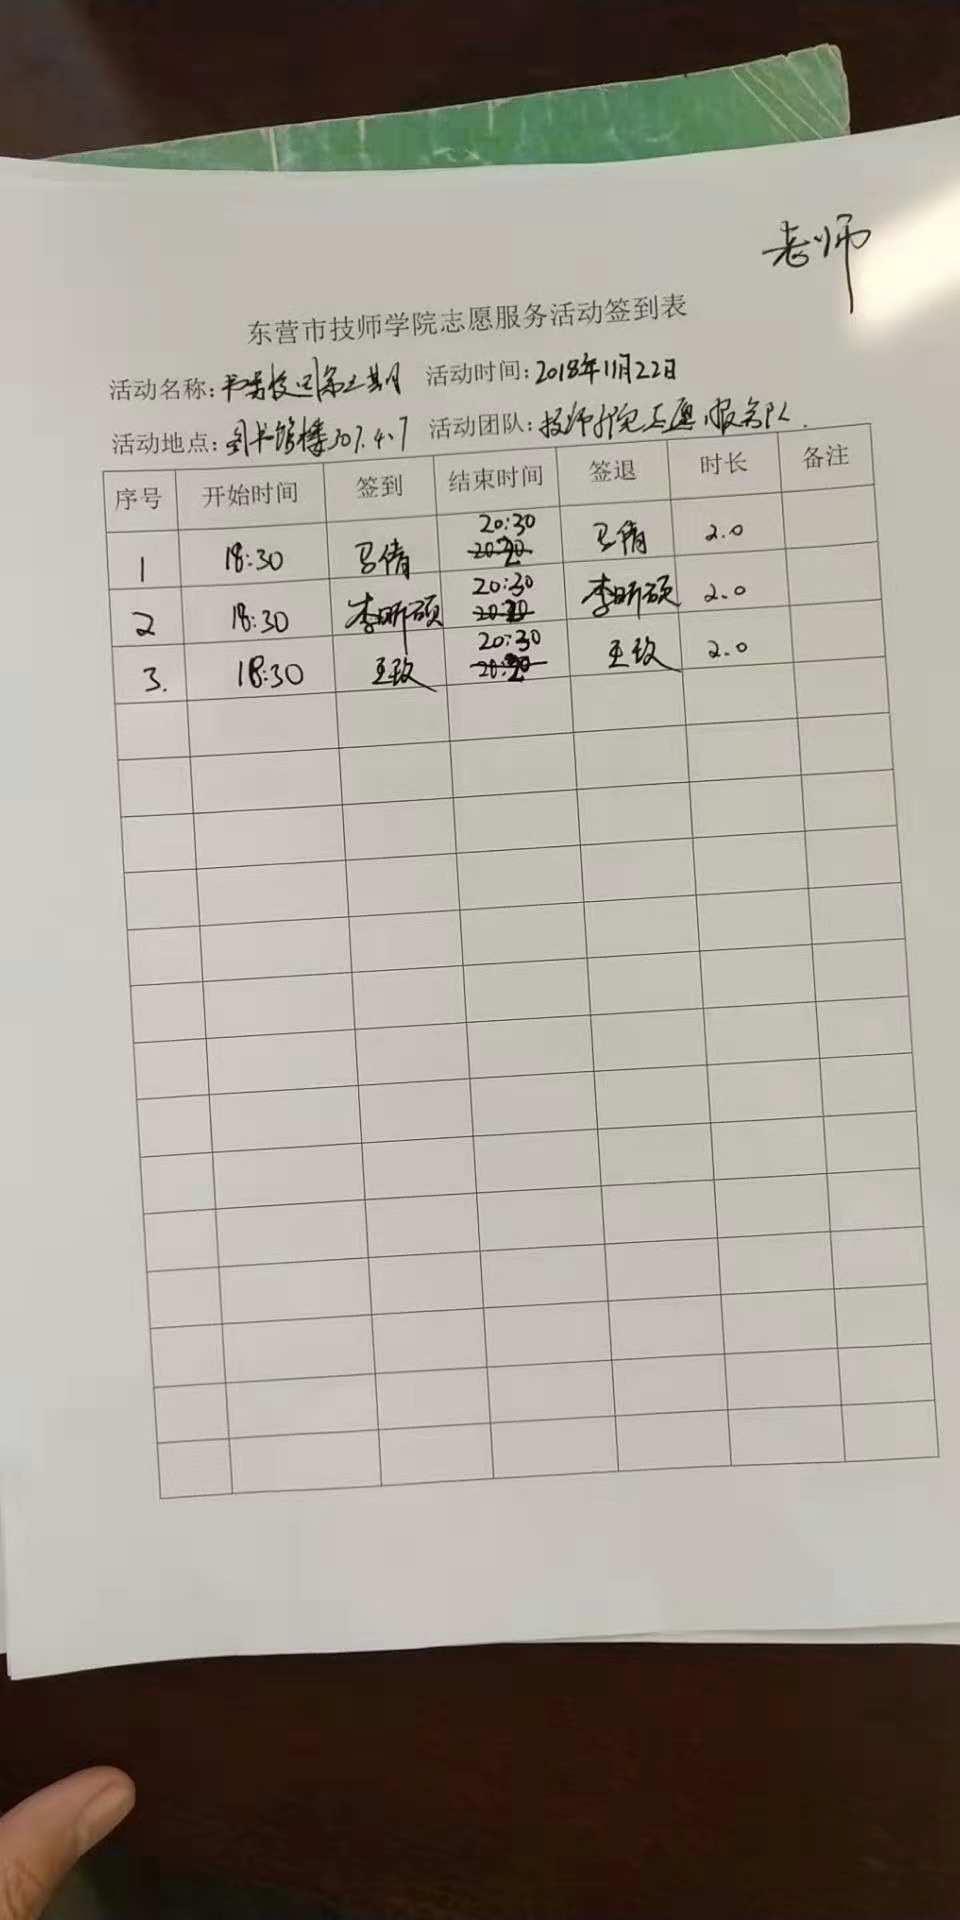 老师
东营市技师学院志愿服务活动签到表
活动名称: 书香校园第三期 活动时间: 2018年11月22日
活动地点: 图书馆楼307.4.7 活动团队: 技师学院志愿服务队.
序号 开始时间 签到 结束时间 签退 时长 备注
1 18:30 马倩 20:30 马倩 2.0
2 18:30 李昕硕 20:30 李昕硕 2.0
3. 18:30 王玫 20:30 王玫 2.0